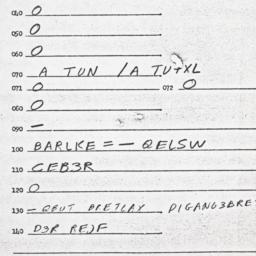 040 O
050 O
060 O
070 A TUN / A TU+XL
071 O 072 O
080 O
090 —
100 BARLKE = — QELSW
110 CEB3R
120 O
130 — QEUT BRETLAY DIGANG3BRE
140 D3R REJF